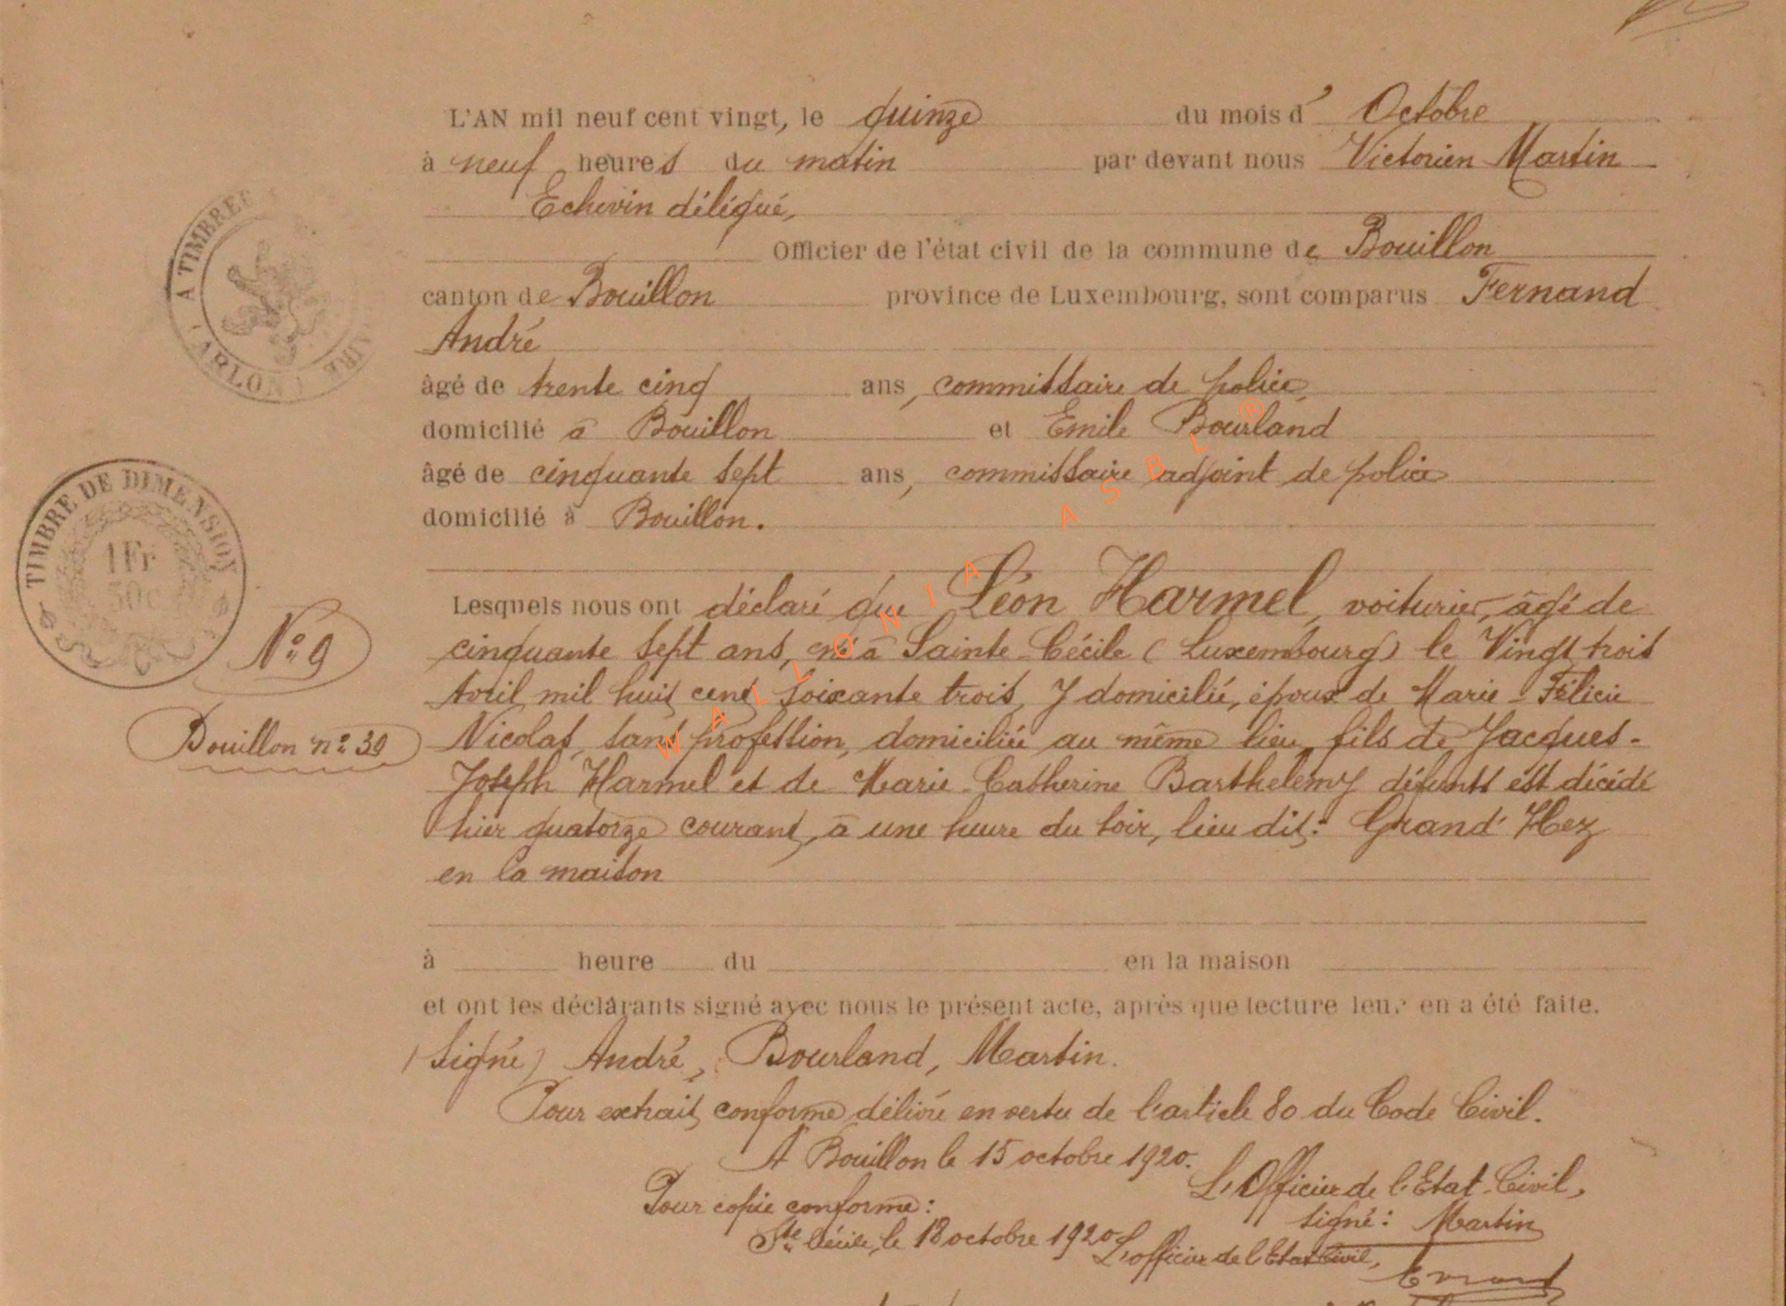 L'AN mil neuf cent vingt, le quinze du mois d' Octobre
à neuf heures du matin par devant nous Victorien Martin
Echevin délégué,
Officier de l'état civil de la commune de Bouillon
canton de Bouillon province de Luxembourg, sont comparus Fernand
André
âgé de trente cinq ans, commissaire de police,
domicilié à Bouillon et Emile Bourland
âgé de cinquante sept ans, commissaire adjoint de police
domicilié à Bouillon.
Lesquels nous ont déclaré que Léon Harmel, voiturier, âgé de
cinquante sept ans, né à Sainte-Cécile (Luxembourg) le Vingt trois
Avril mil huit cent soixante trois, y domicilié, époux de Marie-Félicie
Nicolas, sans profession, domiciliée au même lieu, fils de Jacques-
Joseph Harmel et de Marie-Catherine Barthelemy défunts est décédé
hier quatorze courant, à une heure du soir, lieu dit: Grand' Hez
en la maison
à heure du en la maison
et ont les déclarants signé avec nous le présent acte, après que lecture leur en a été faite.
(Signé) André, Bourland, Martin.
Pour extrait conforme délivré en vertu de l'article 80 du Code Civil.
A Bouillon le 15 octobre 1920.
L'Officier de l'Etat-Civil,
signé: Martin
Pour copie conforme:
Ste Cécile, le 18 octobre 1920
L'officier de l'Etat Civil,
A TIMBRER
ARLON
TIMBRE DE DIMENSION
1 Fr
50c
N° 9
Bouillon n° 39
WALLONIA ASBL ®